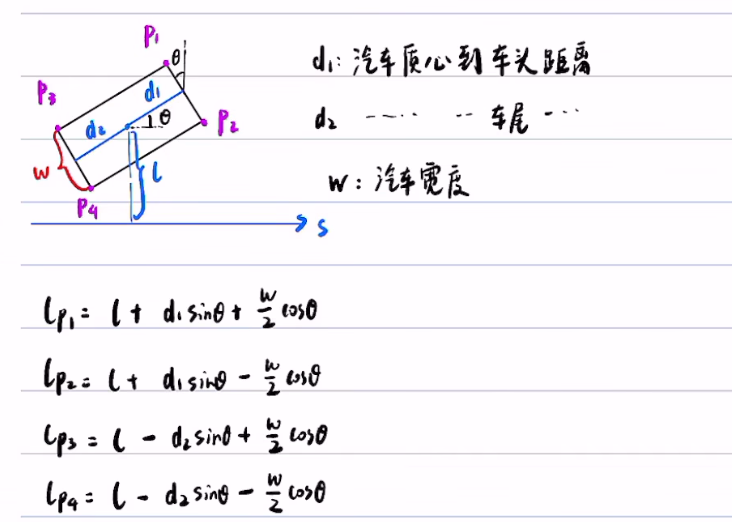 P₁
θ
d₁
P₃
d₂
θ
P₂
w
l
P₄
s
d₁: 汽车质心到车头距离
d₂ ---- -- 车尾 ---
w: 汽车宽度
lp₁ = l + d₁sinθ + w/2 cosθ
lp₂ = l + d₁sinθ - w/2 cosθ
lp₃ = l - d₂sinθ + w/2 cosθ
lp₄ = l - d₂sinθ - w/2 cosθ